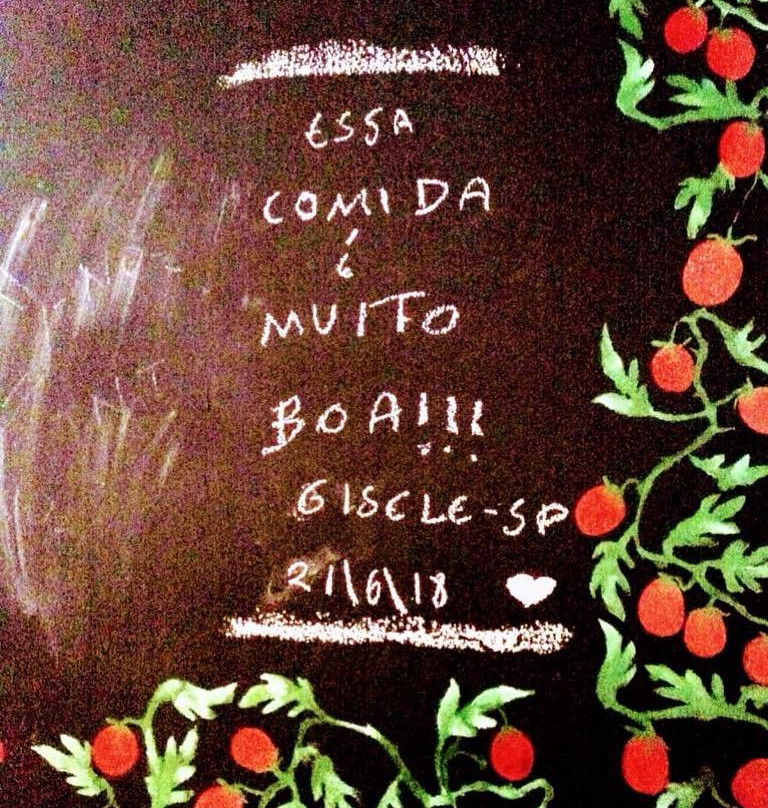 ESSA
COMIDA
É
MUITO
BOA!!!
GISELE-SP
21\6\18